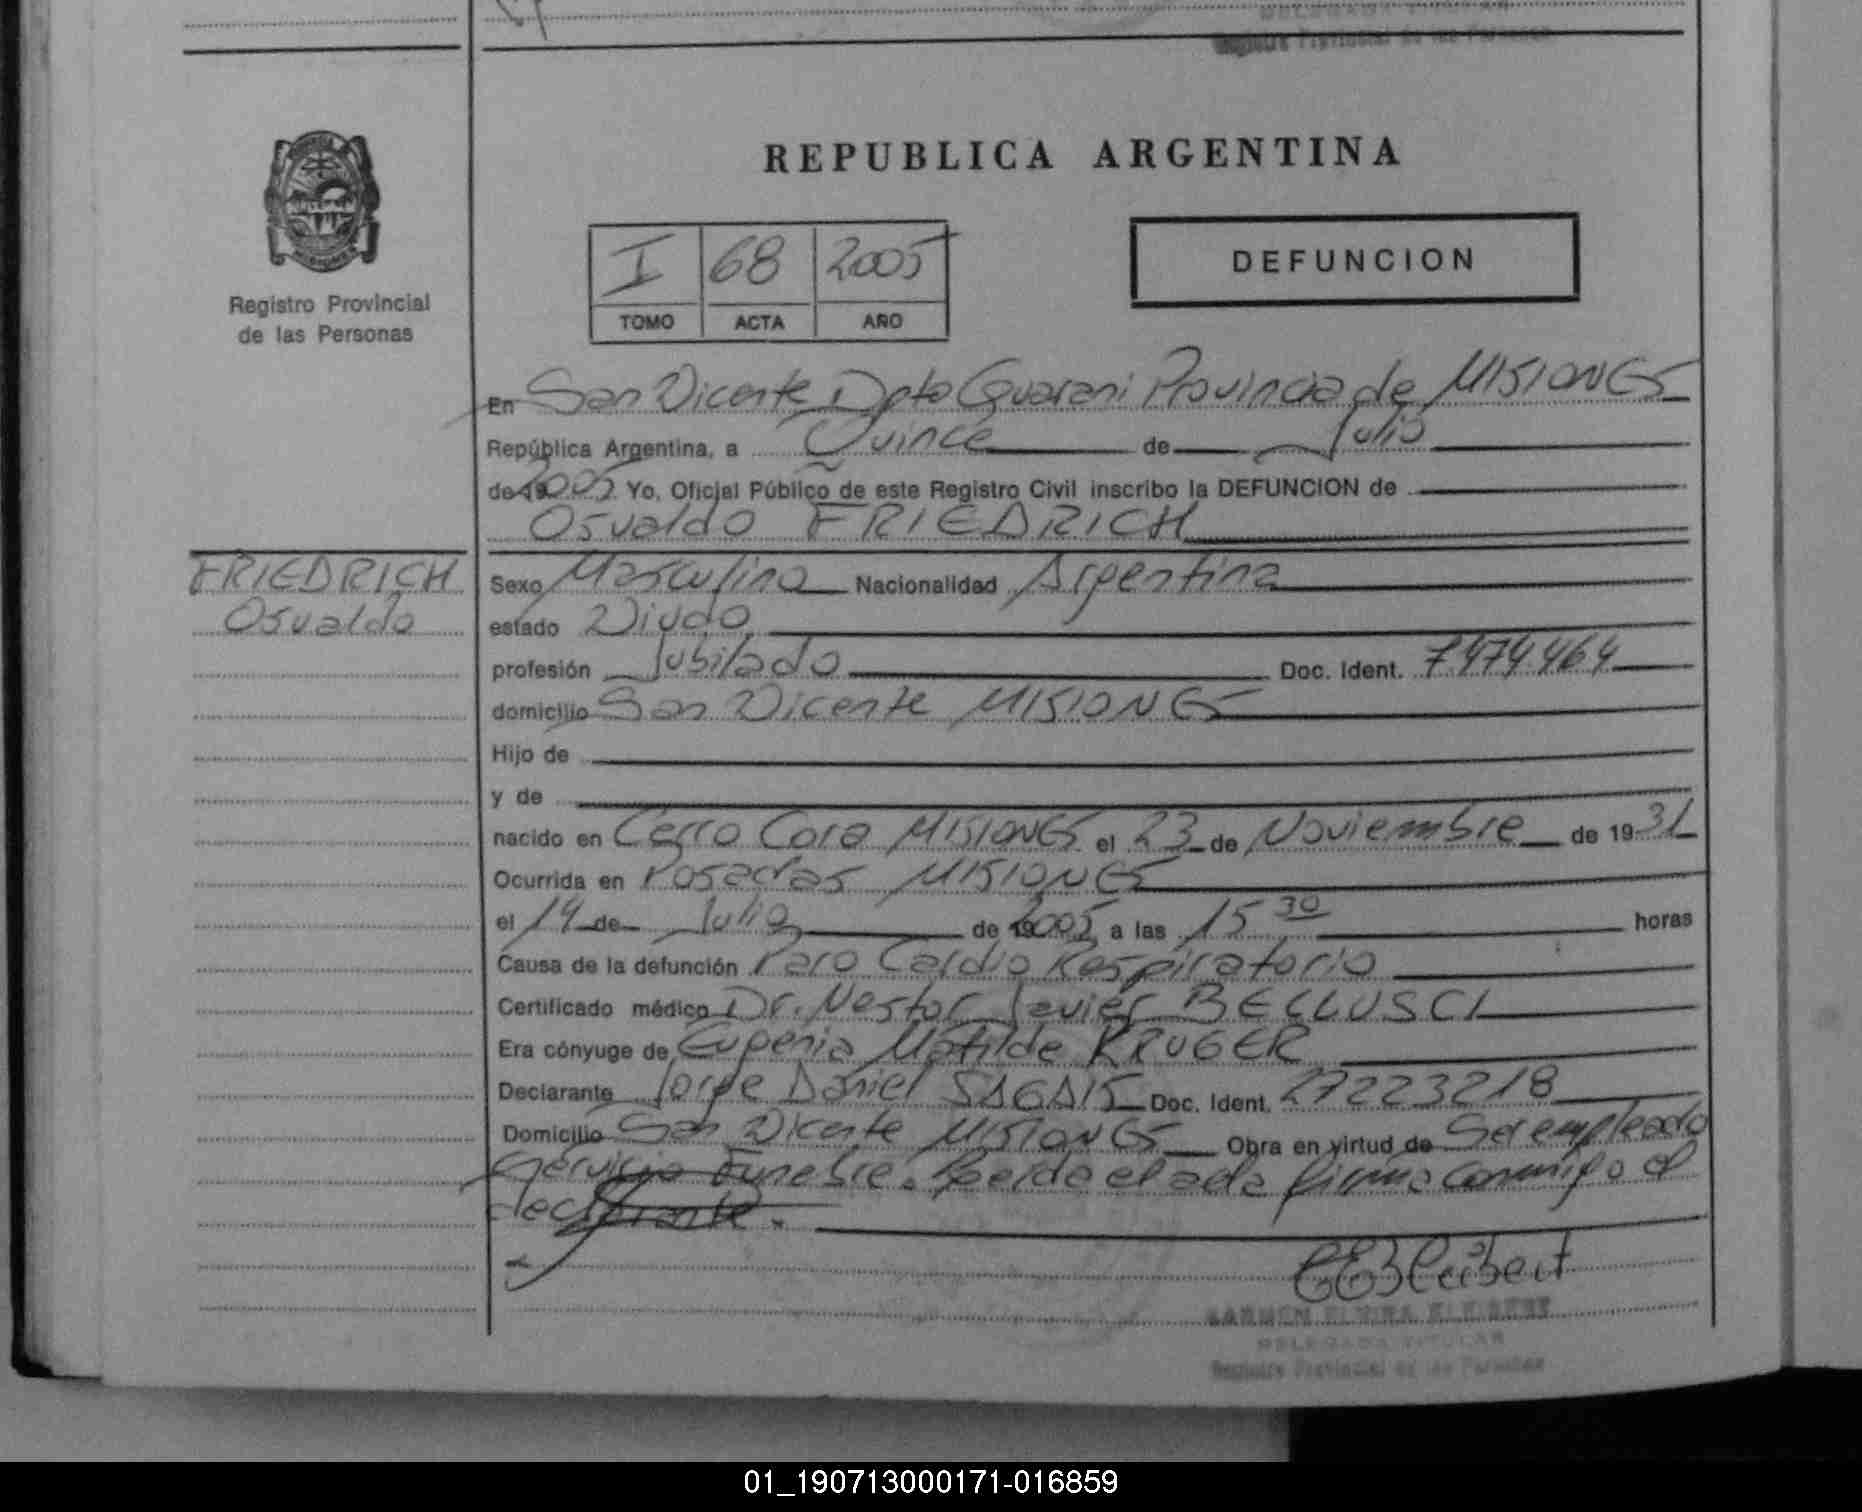 Registro Provincial de las Personas
REPUBLICA ARGENTINA
I 68 2005
TOMO ACTA AÑO
DEFUNCION
Registro Provincial
de las Personas
En San Vicente Dpto Guarani Provincia de MISIONES
República Argentina, a Quince de Julio
de 19 2005 Yo, Oficial Público de este Registro Civil inscribo la DEFUNCION de
Osvaldo FRIEDRICH
FRIEDRICH
Osvaldo
Sexo Masculino Nacionalidad Argentina
estado Viudo
profesión Jubilado Doc. Ident. 7.474.464
domicilio San Vicente MISIONES
Hijo de
y de
nacido en Cerro Cora MISIONES el 23 de Noviembre de 1931
Ocurrida en Posadas MISIONES
el 14 de Julio de 19 2005 a las 15 30 horas
Causa de la defunción Paro Cardio Respiratorio
Certificado médico Dr. Nestor Javier BELLUSCI
Era cónyuge de Eugenia Matilde KRUGER
Declarante Jorge Daniel SAGAIS Doc. Ident. 27223218
Domicilio San Vicente MISIONES Obra en virtud de Ser empleado
Servicio Funebre. Leida el acta firma conmigo el
declarante.
CARMEN ELVIRA
DELEGADA TITULAR
Registro Provincial de las Personas
01_190713000171-016859